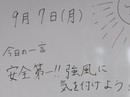 9月7日(月)
今日の一言
安全第一!!強風に
気を付けよう